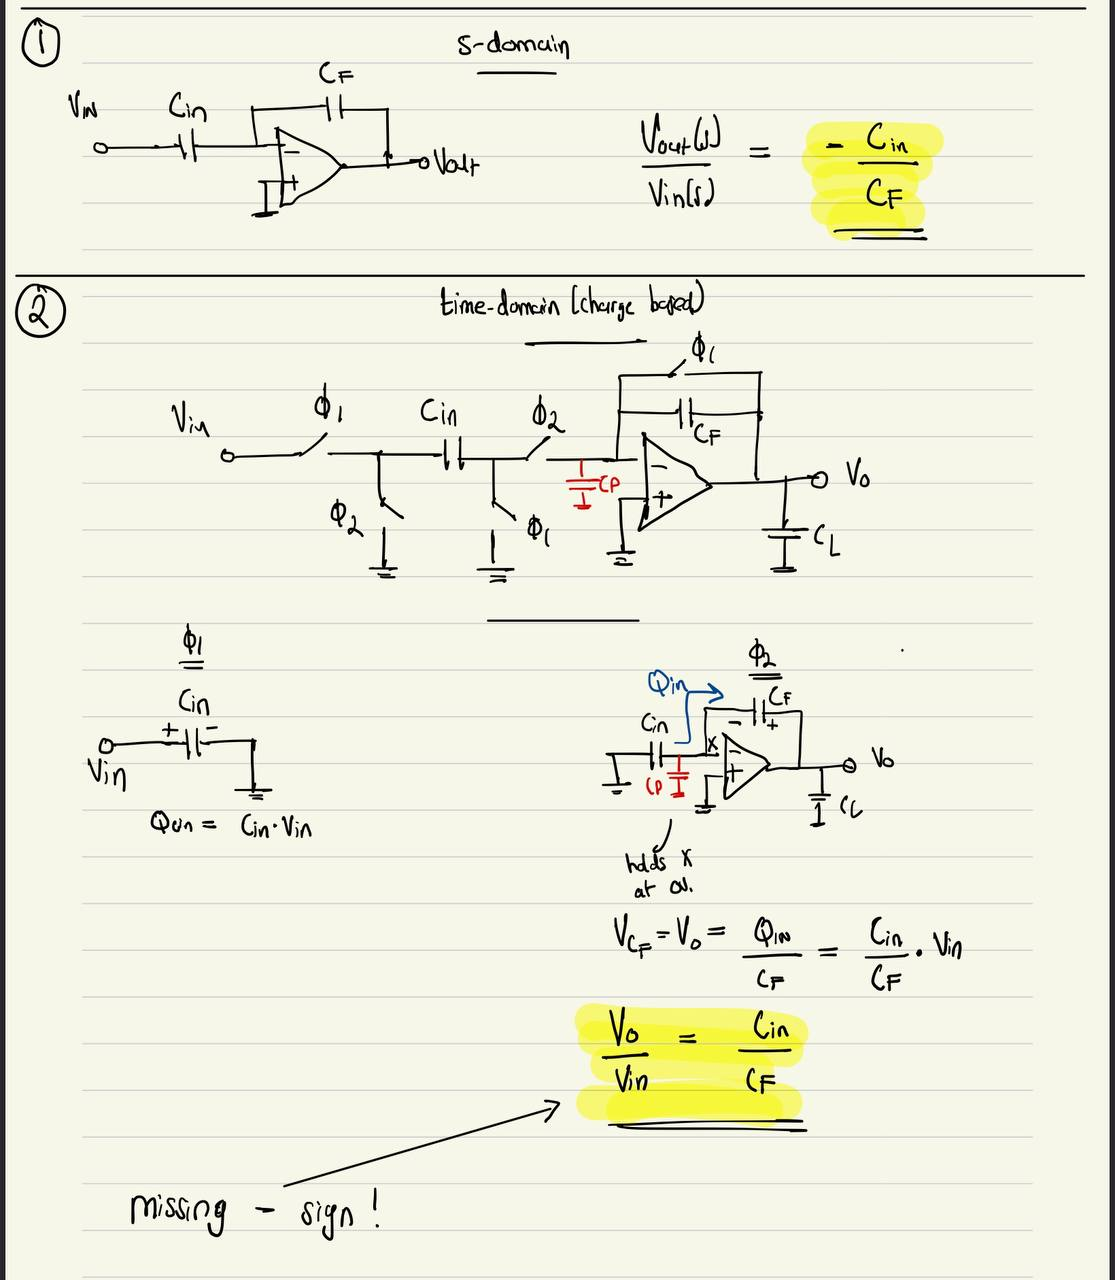 1
s-domain
CF
VIN
Cin
Vout
-
+
Vout(s)
Vin(s)
=
- Cin
CF
2
time-domain (charge based)
Φ1
Vin
Φ1
Cin
Φ2
CF
CP
-
+
Vo
Φ2
Φ1
CL
Φ1
Cin
+ -
Vin
Qin = Cin·Vin
Φ2
Qin
CF
Cin
- +
X
-
+
Vo
CP
CL
holds X
at 0V.
VCF = Vo = QIN / CF = Cin / CF · Vin
Vo / Vin = Cin / CF
missing - sign!